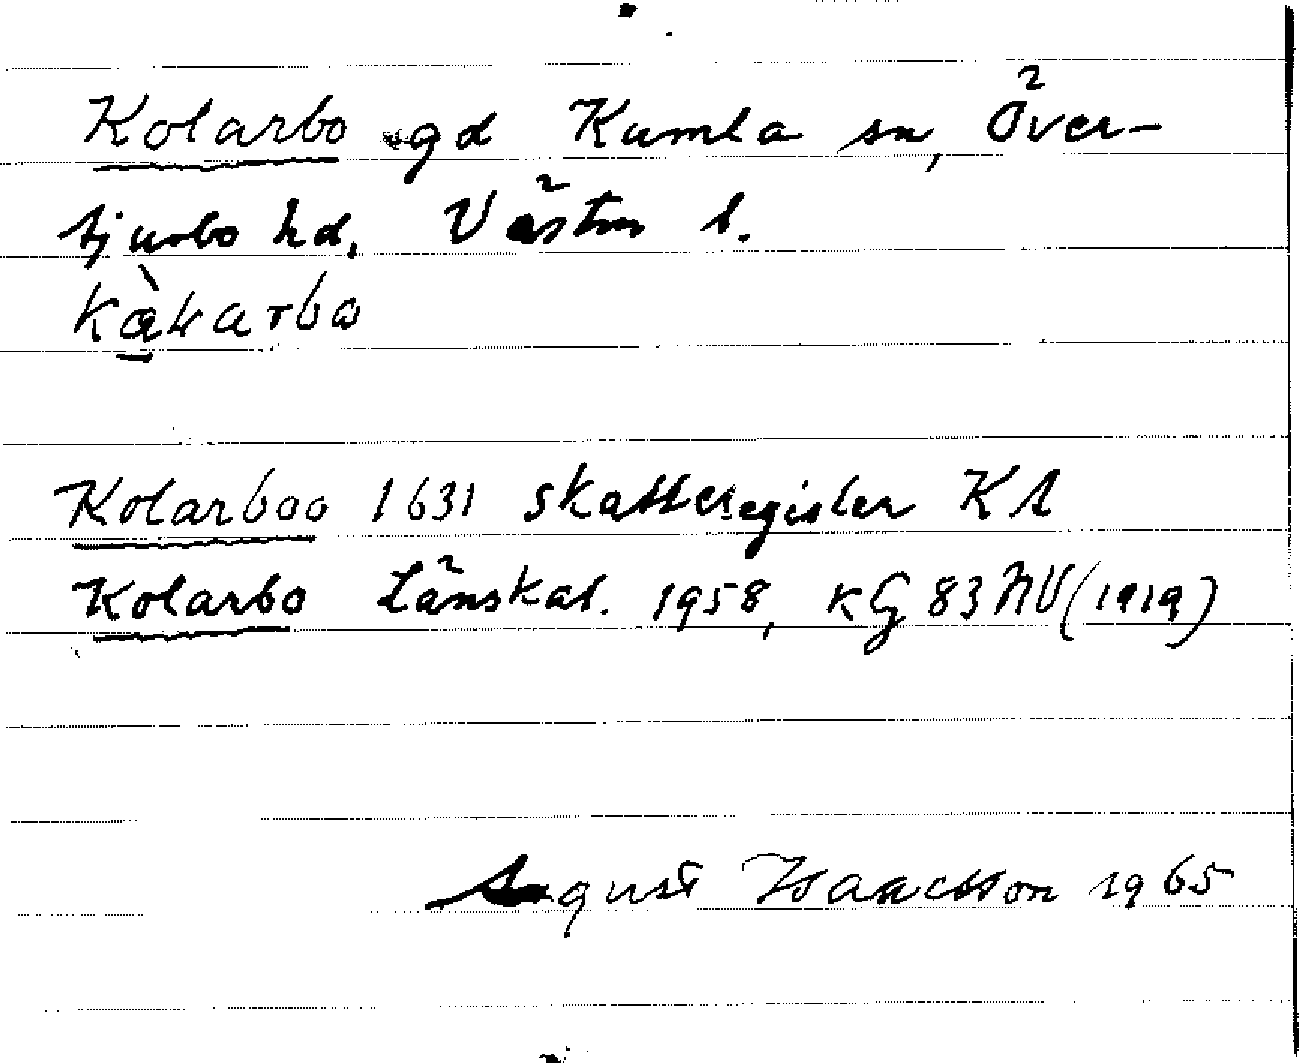 Kolarbo gd Kumla sn, Över-
tjurbo hd, Västm l.
Kolarboo 1631 skatteregister KA
Kolarbo Länskal. 1958, KG 83 NV (1919)
August Isaacsson 1965